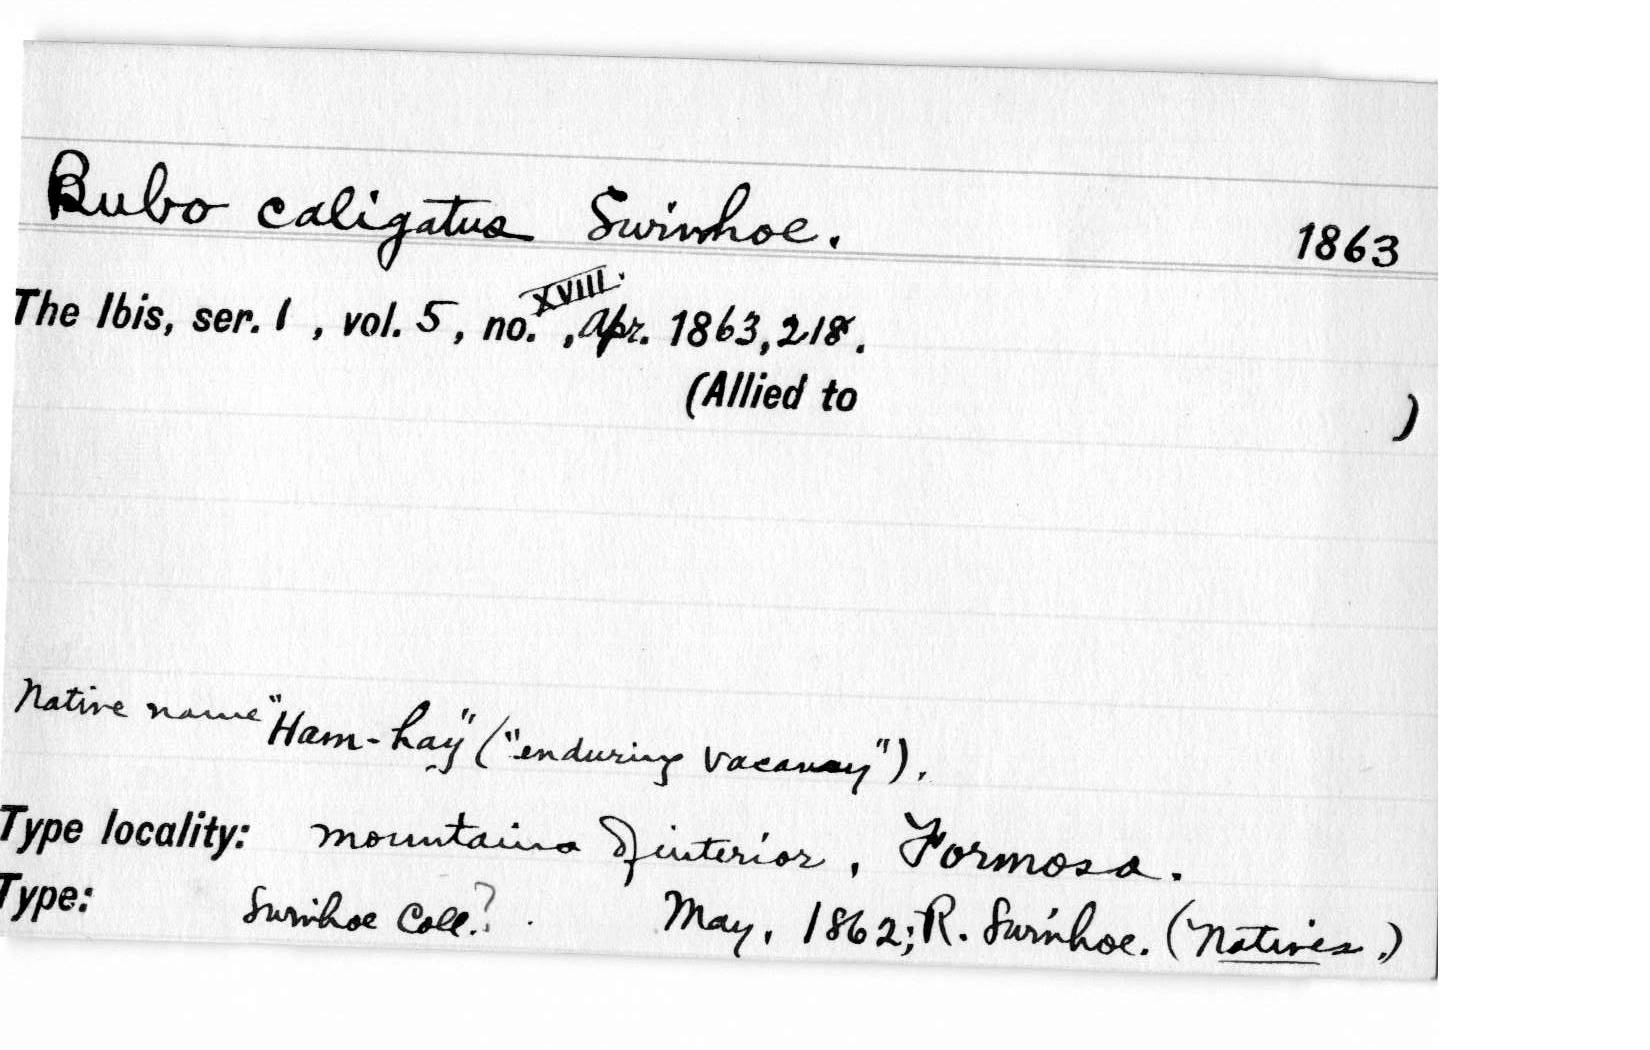 Bubo caligatus Swinhoe. 1863
The Ibis, ser. 1, vol. 5, no. XVIII., Apr. 1863, 218.
(Allied to )
Native name "Ham-hay" ("enduring vacancy").
Type locality: mountains of interior, Formosa.
Type: Swinhoe Coll.? . May, 1862; R. Swinhoe. (Natives.)